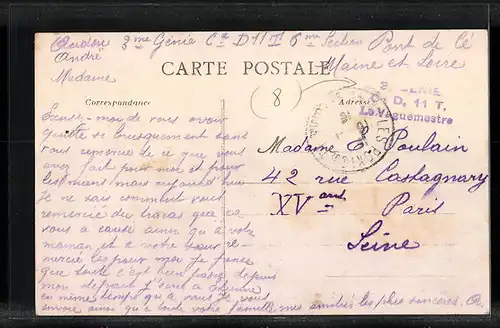 3me Génie Cie D 11 T 6me Section Pont de Cé
André
Maine et Loire
Madame
CARTE POSTALE
8
Correspondance
Adresse
GÉNIE
D. 11 T.
Le Vaguemestre
Excusez-moi de vous avoir
quitté si brusquement sans
vous remercier de ce que vous
avez fait pour moi et pour
les miens mais aujourd'hui
je ne sais comment vous
remercier du tracas que ça
vous a causé ainsi qu'à votre
maman et à votre sœur re-
merciez les pour moi je pense
que toute c'est bien passé depuis
mon départ
en même temps qu'à vous je vous
envoie ainsi qu'à toute votre famille mes amitiés les plus sincères.
Madame E. Poulain
42 rue Castagnary
XVe arr.
Paris
Seine